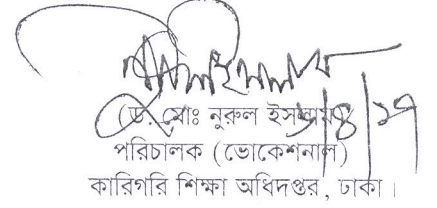 (ড. মোঃ নুরুল ইসলাম)
পরিচালক (ভোকেশনাল)
কারিগরি শিক্ষা অধিদপ্তর, ঢাকা।